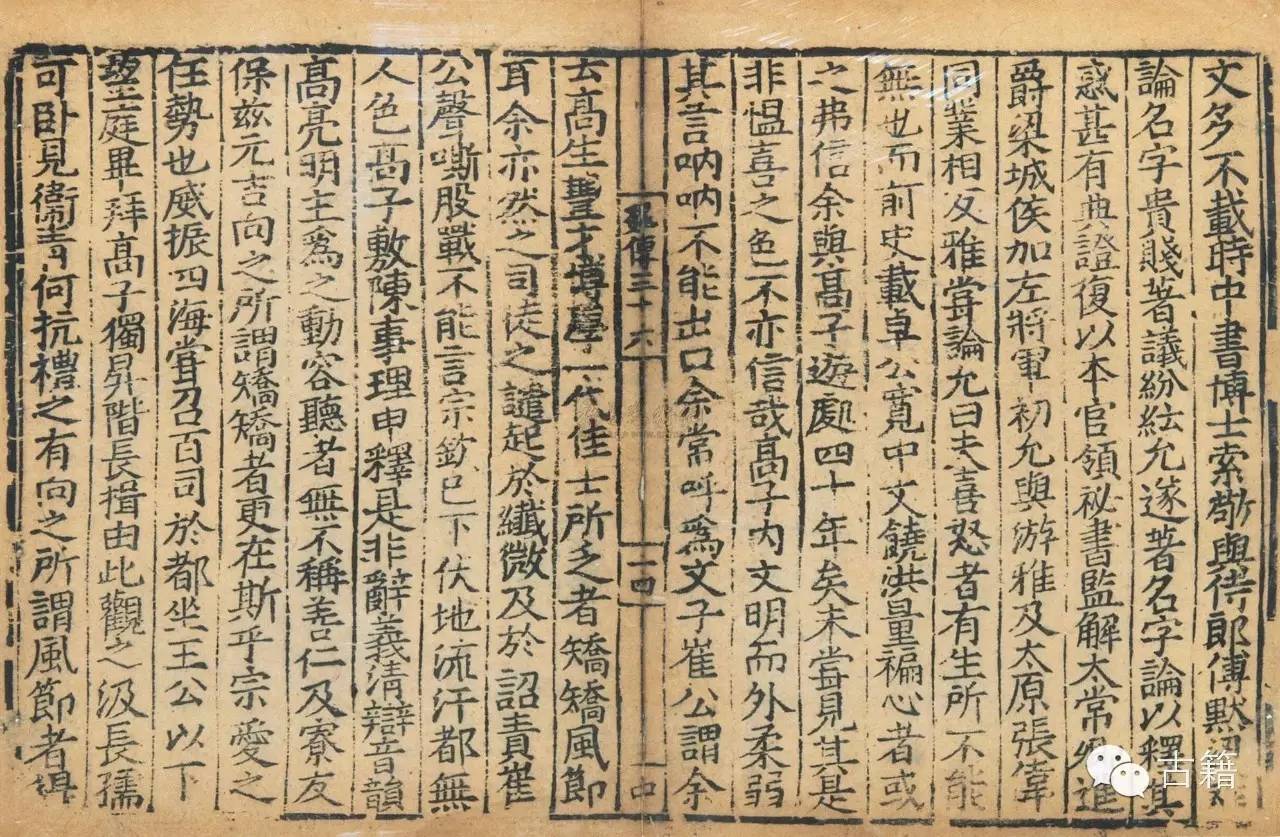 文多不載時中書博士索敞與侍郎傅默
論名字貴賤著議紛紜允遂著名字論以釋其
惑甚有典證復以本官領祕書監解太常卿進
爵梁城侯加左將軍初允與游雅及太原張偉
同業相友雅嘗論允曰夫喜怒者有生所不能
無也而前史載卓公寬中文饒洪量褊心者或
之弗信余與髙子遊處四十年矣未嘗見其是
非愠喜之色不亦信哉髙子内文明而外柔弱
其言吶吶不能出口余常呼爲文子崔公謂余
傳三十六
去髙生豐才博學一代佳士所乏者矯矯風節
耳余亦然之司徒之譴起於纖微及於詔責崔
公聲嘶股戰不能言宗欽巳下伏地流汗都無
人色髙子敷陳事理申釋是非辭義清辯音韻
髙亮明主爲之動容聽者無不稱善仁及寮友
保兹元吉向之所謂矯矯者更在斯乎宗愛之
任勢也威振四海嘗召百司於都坐王公以下
望庭畢拜髙子獨昇階長揖由此觀之汲長孺
可卧見衞青何抗禮之有向之所謂風節者得
古籍